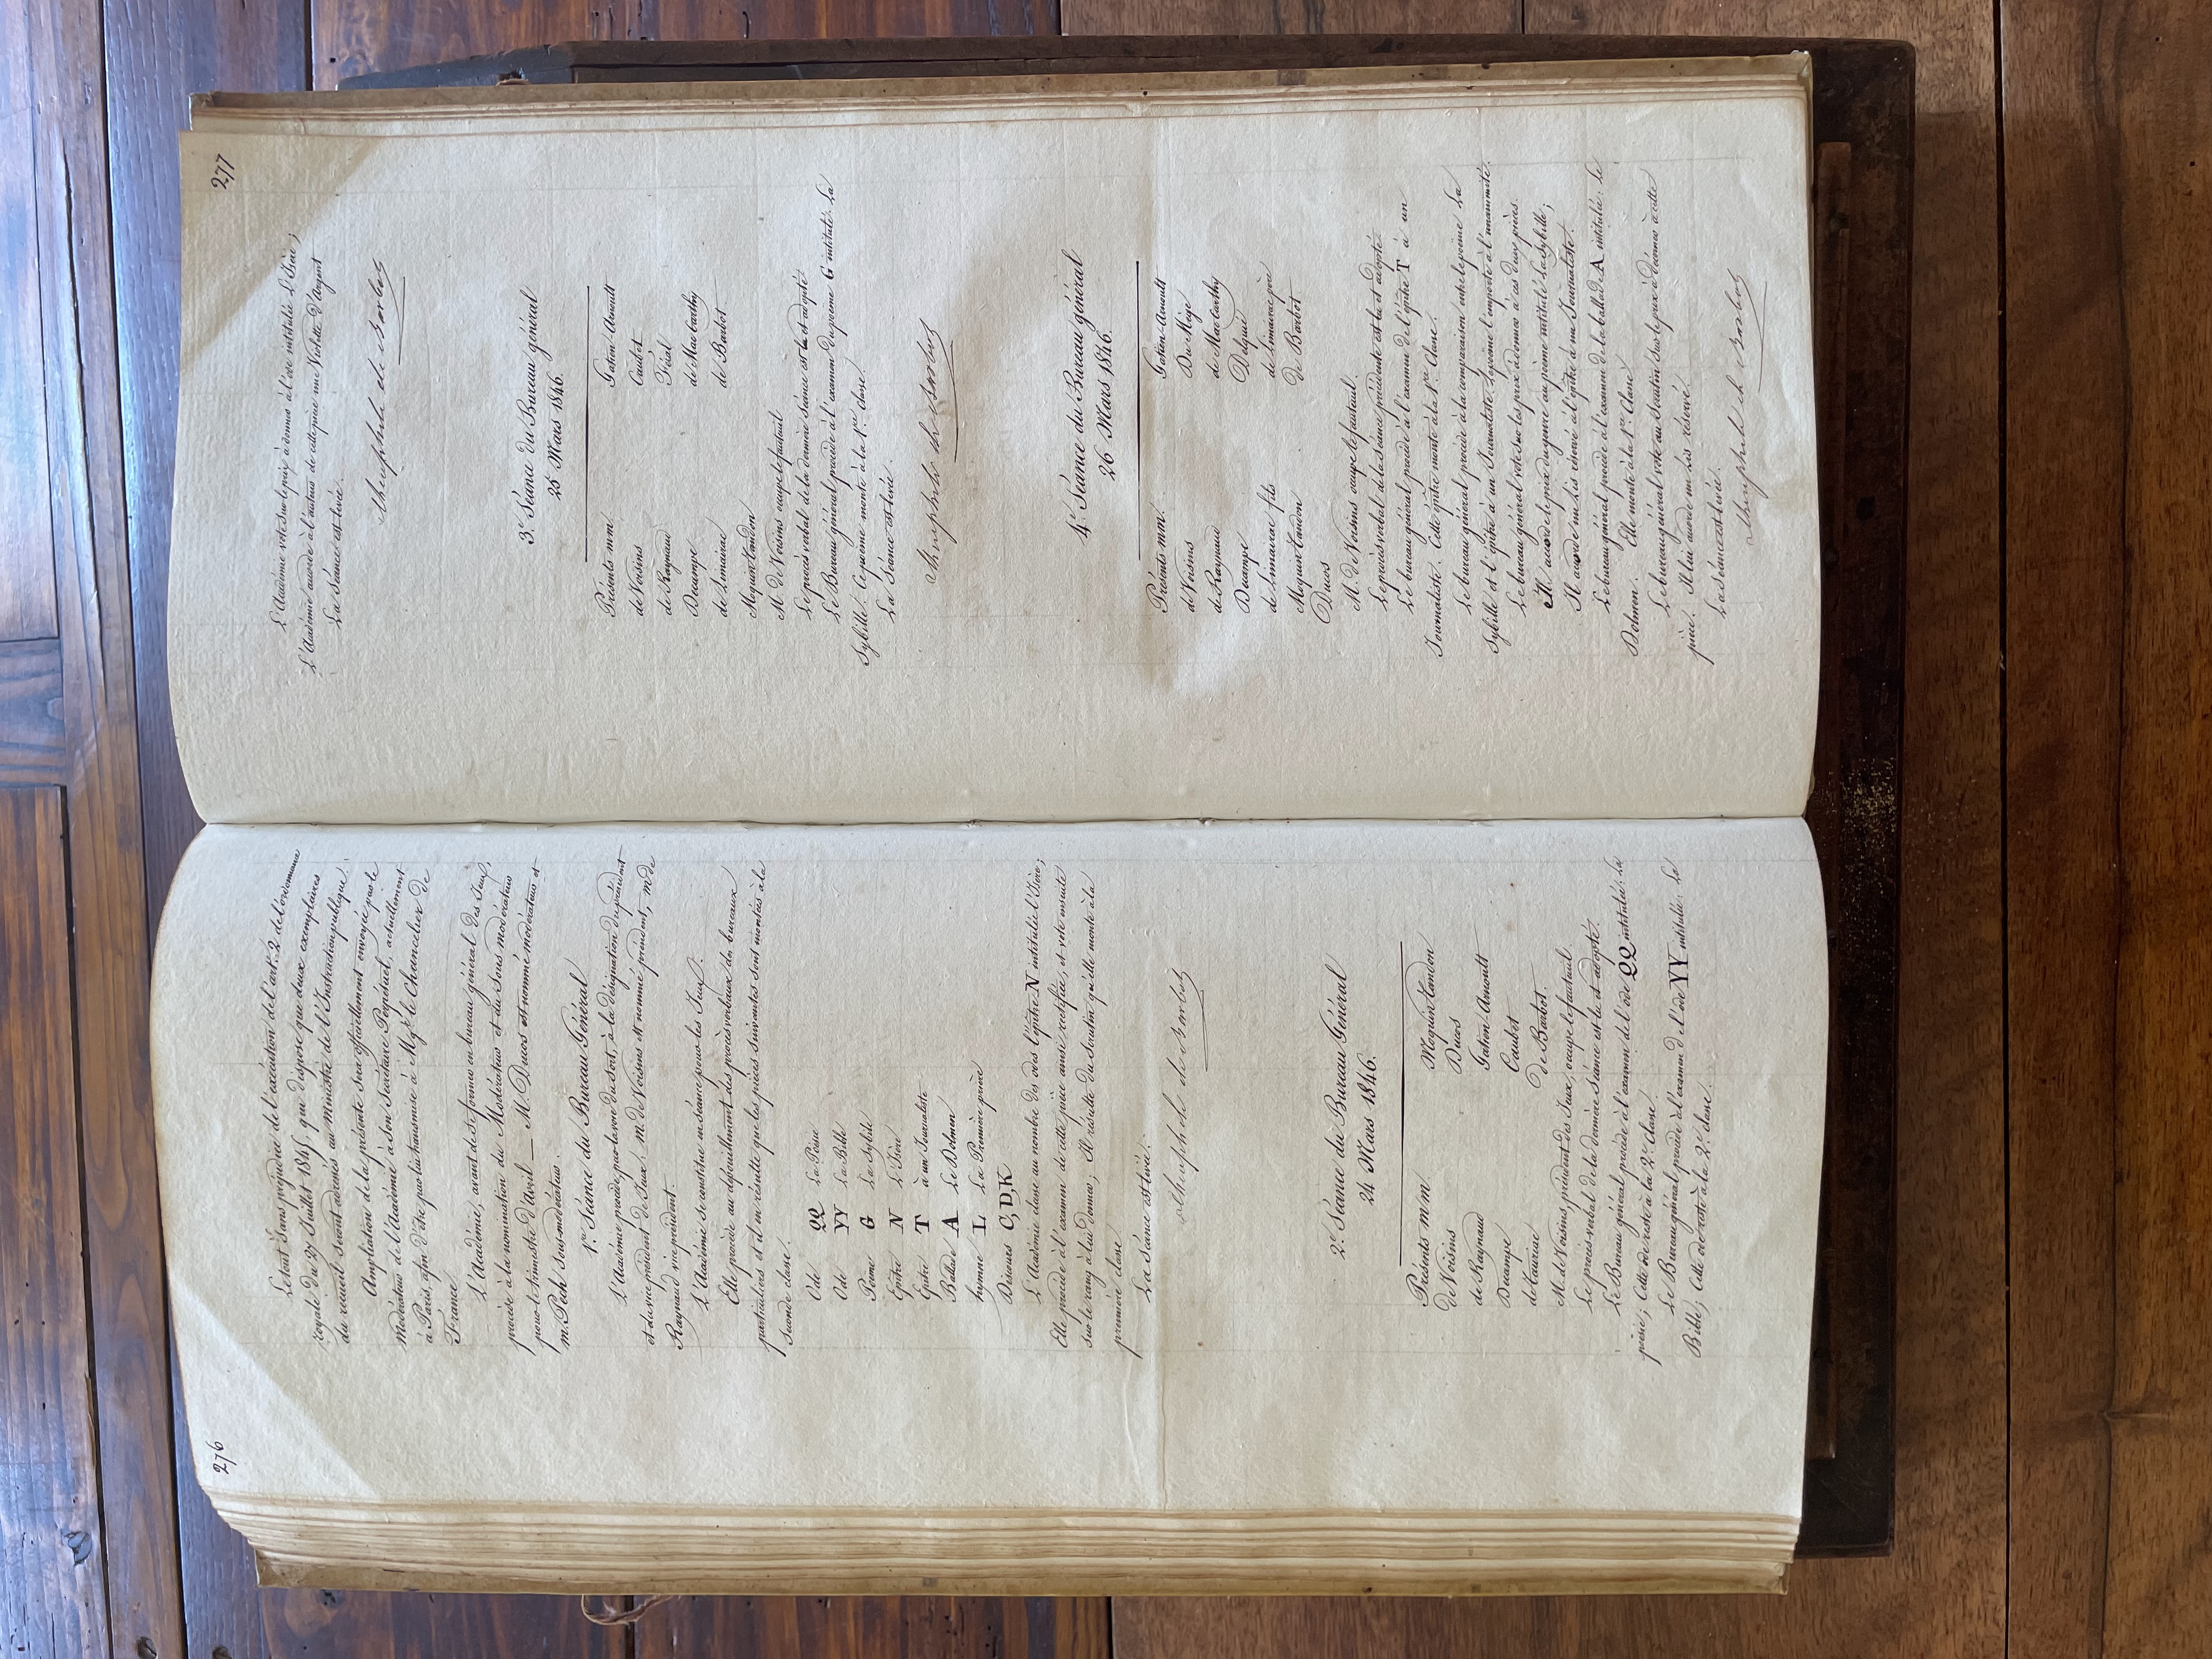 276
Le tout sans préjudice de l'exécution de l'art. 2 de l'ordonnance
royale du 27 Juillet 1845, qui dispose que deux exemplaires
du recueil seront adressés au Ministre de l'Instruction publique.
Ampliation de la présente sera officiellement envoyée par le
Modérateur de l'Académie à son Secrétaire Perpétuel, actuellement
à Paris, afin d'être par lui transmise à Mgr. le Chancelier de
France.
L'Académie, avant de se former en bureau général des Jeux,
procède à la nomination du Modérateur et du Sous modérateur
pour le trimestre d'avril — M. Ducos est nommé modérateur et
m. Pech sous-modérateur.
1re Séance du Bureau Général
L'Académie procède par la voie du sort, à la désignation du président
et du vice président des Jeux. m. de Voisins est nommé président, m de
Raynaud vice président.
L'Académie se constitue en séance pour les Jeux.
Elle procède au dépouillement des procès verbaux des bureaux
particuliers et il en résulte que les pièces suivantes sont montées à la
seconde classe.
Ode QQ La Poésie
Ode YY La Bible
Poëme G La Sybille
Epitre N L'Isère
Epitre T à un Journaliste
Ballade A Le Dolmen
hymne L La Première prière
Discours C, D, K
L'Académie classe au nombre des odes l'épitre N intitulée l'Isère;
Elle procède à l'examen de cette pièce ainsi rectifiée, et vote ensuite
sur le rang à lui donner; Il résulte du scrutin qu'elle monte à la
première classe.
La séance est levée.
théophile de Barbot
2e. Séance du Bureau Général
24 Mars 1846.
Présents m m
de Voisins Moquin Tandon
de Raynaud Ducos
Decampe Gatien-Arnoult
de Tauriac Caubet
de Barbot.
M. de Voisins, président des Jeux, occupe le fauteuil.
Le procès-verbal de la dernière séance est lu et adopté.
Le Bureau général procède à l'examen de l'ode QQ intitulée: la
poésie; Cette ode reste à la 2e classe.
Le Bureau général procède à l'examen de l'ode YY intitulée: la
Bible; Cette ode reste à la 2e. classe.
277
L'Académie vote sur le prix à donner à l'ode intitulée L'Isère;
L'Académie accorde à l'auteur de cette pièce une Violette d'Argent
La Séance est levée.
théophile de Barbot
3e. Séance du Bureau général
25 Mars 1846.
Présents m m
de Voisins Gatien-Arnoult
de Raynaud Caubet
Decampe Féral
de Limairac de Mac Carthy
Moquin Tandon de Barbot
M. de Voisins occupe le fauteuil
Le procès verbal de la dernière séance est lu et adopté
Le Bureau général procède à l'examen du poème G intitulé: la
Sybille. Ce poème monte à la 1re. classe.
La Séance est levée.
théophile de Barbot
4e. Séance du Bureau général
26 Mars 1846.
Présents mm.
de Voisins Gatien-Arnoult
de Raynaud Du Mège
Decampe de Mac Carthy
de Limairac fils Delquié
Moquin Tandon de Limairac père
Ducos de Barbot
M. de Voisins occupe le fauteuil.
Le procès verbal de la séance précédente est lu et adopté
Le bureau général procède à l'examen de l'épitre T à un
Journaliste. Cette épitre monte à la 1re. classe.
Le bureau général procède à la comparaison entre le poème la
Sybille et l'épitre à un Journaliste; le poème l'emporte à l'unanimité.
Le bureau général vote sur les prix à donner à ces deux pièces.
Il accorde le prix du genre au poème intitulé la Sybille;
Il accorde un lis réservé à l'épitre à un Journaliste.
Le bureau général procède à l'examen de la ballade A intitulée: le
Dolmen. Elle monte à la 1re. Classe
Le bureau général vote au scrutin sur le prix à donner à cette
pièce. Il lui accorde un lis réservé.
La séance est levée.
théophile de Barbot